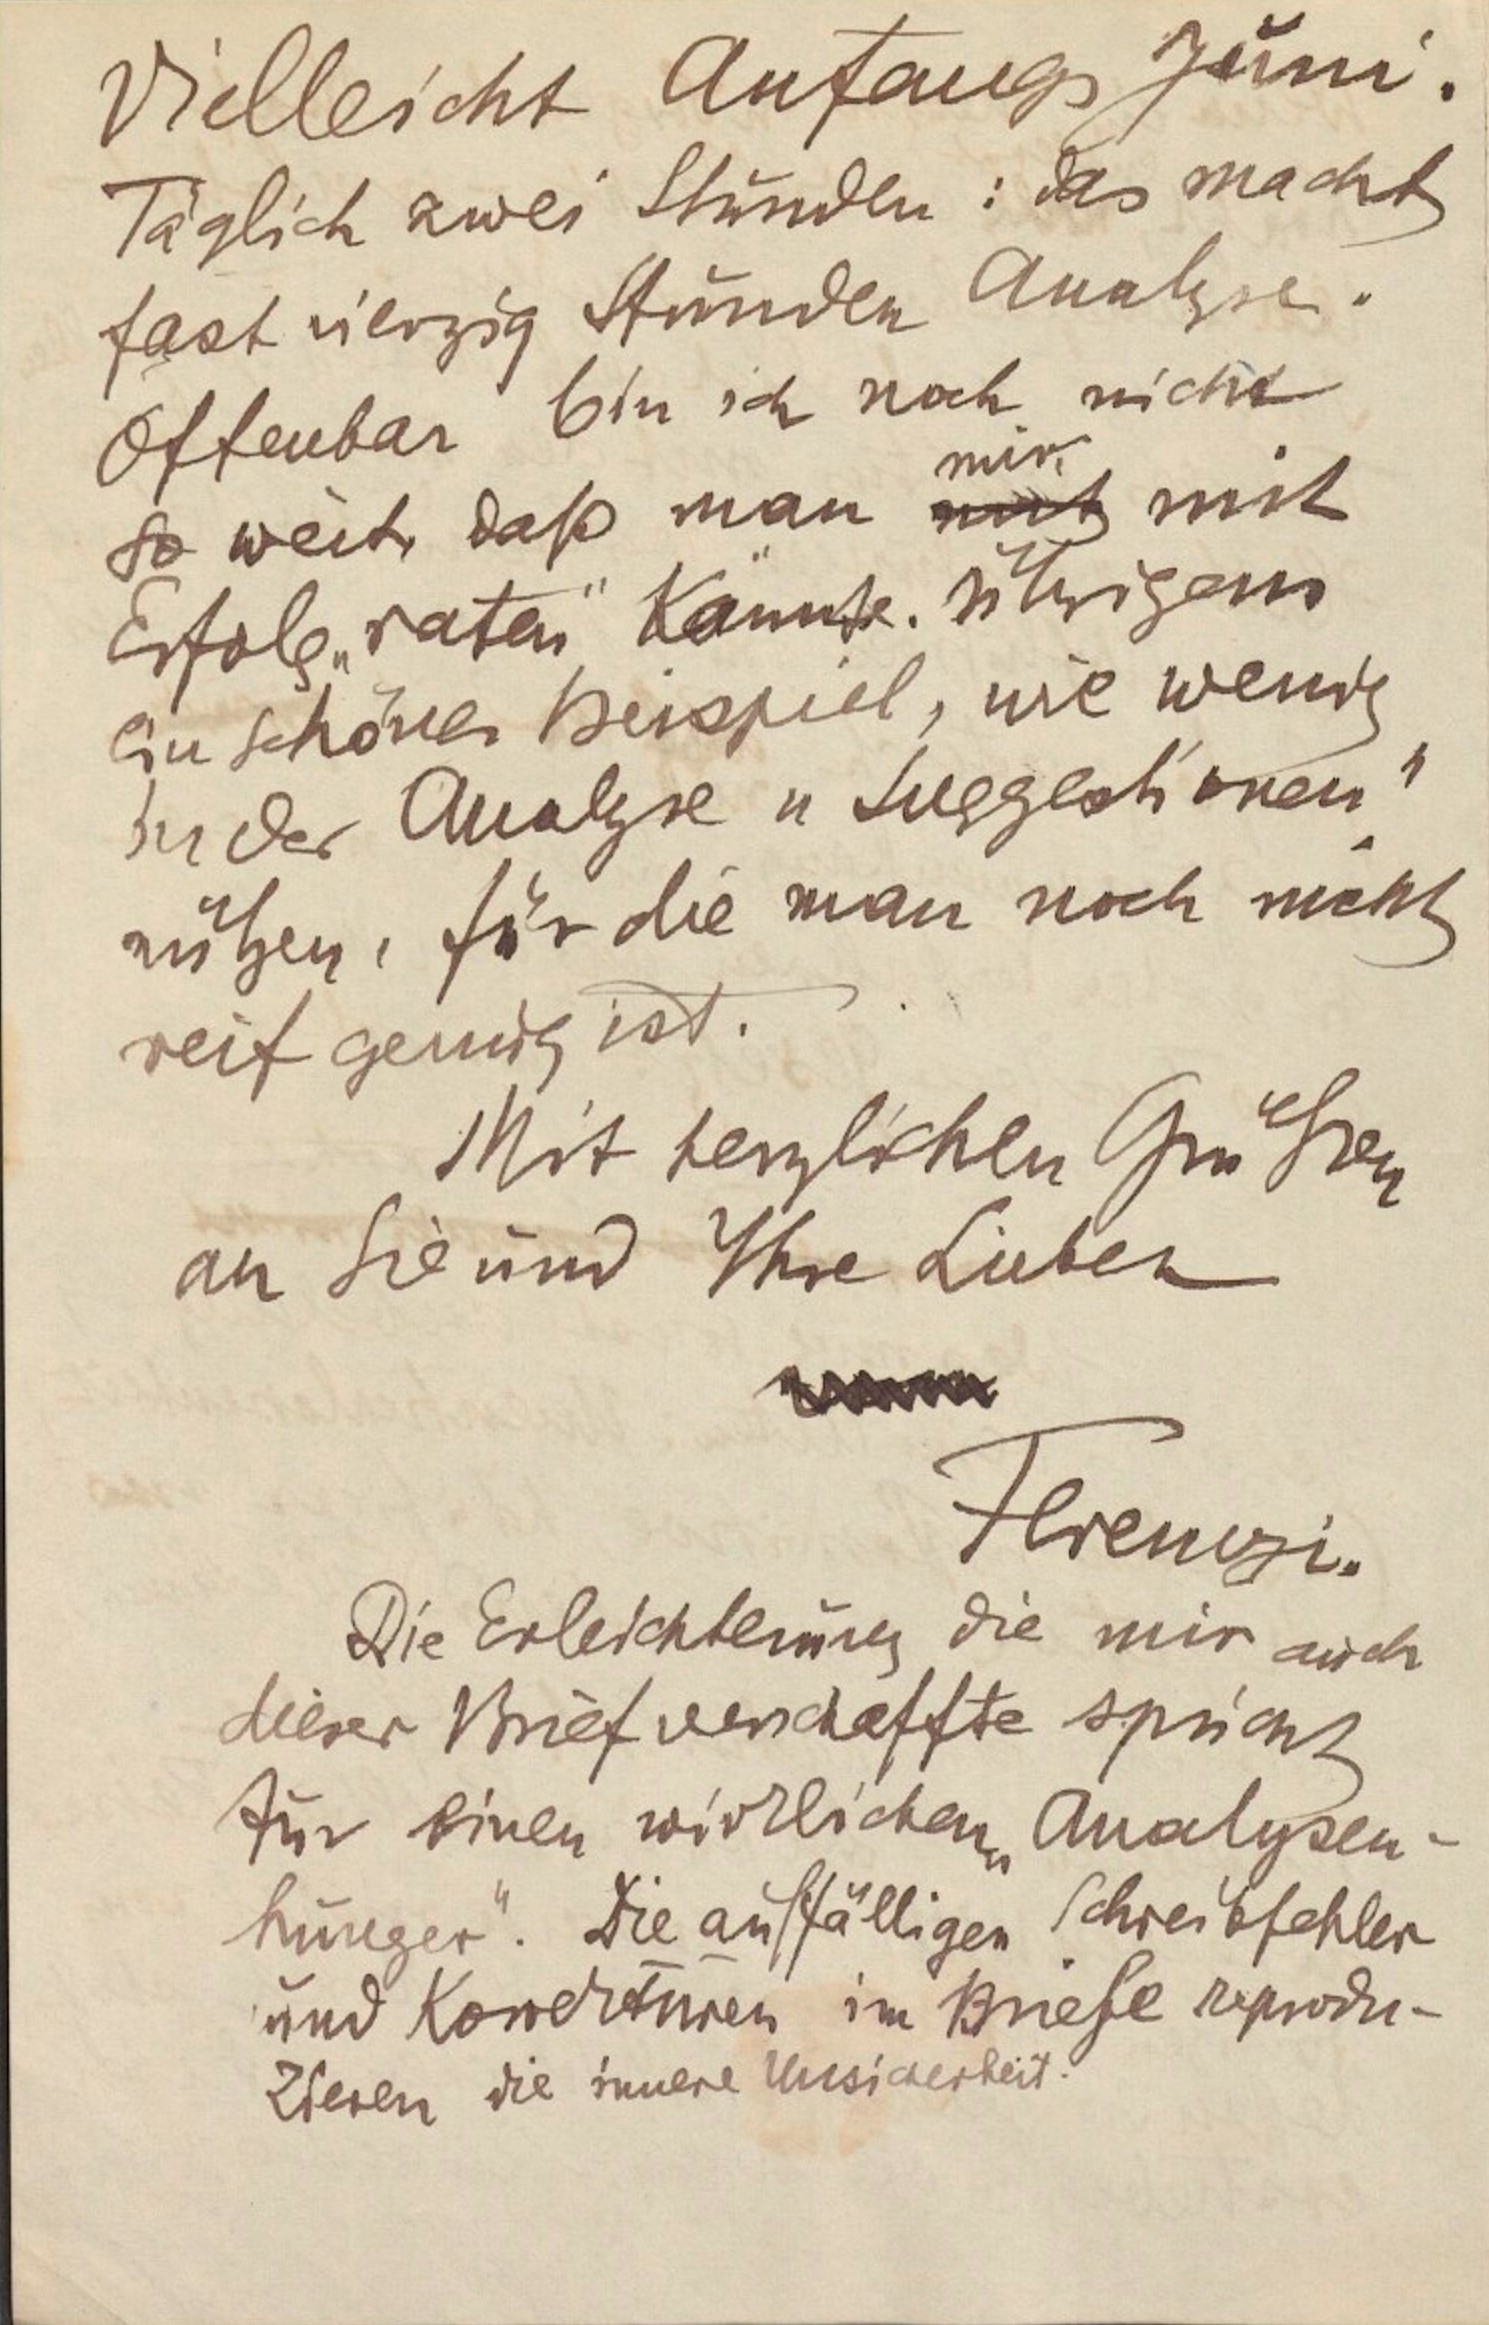 Vielleicht Anfangs Juni.
Täglich zwei Stunden : das macht
fast vierzig Stunden Analyse.
Offenbar bin ich noch nicht
so weit, daß man mir mit
Erfolg „raten" könnte. Übrigens
ein schönes Beispiel, wie wenig
in der Analyse „Suggestionen"
nützen, für die man noch nicht
reif genug ist.
Mit herzlichen Grüßen
an Sie und Ihre Lieben
Ferenczi.
Die Erleichterung die mir auch
dieser Brief verschaffte spricht
für einen wirklichen „Analysen-
hunger". Die auffälligen Schreibfehler
und Korrekturen im Briefe reprodu-
zieren die innere Unsicherheit.